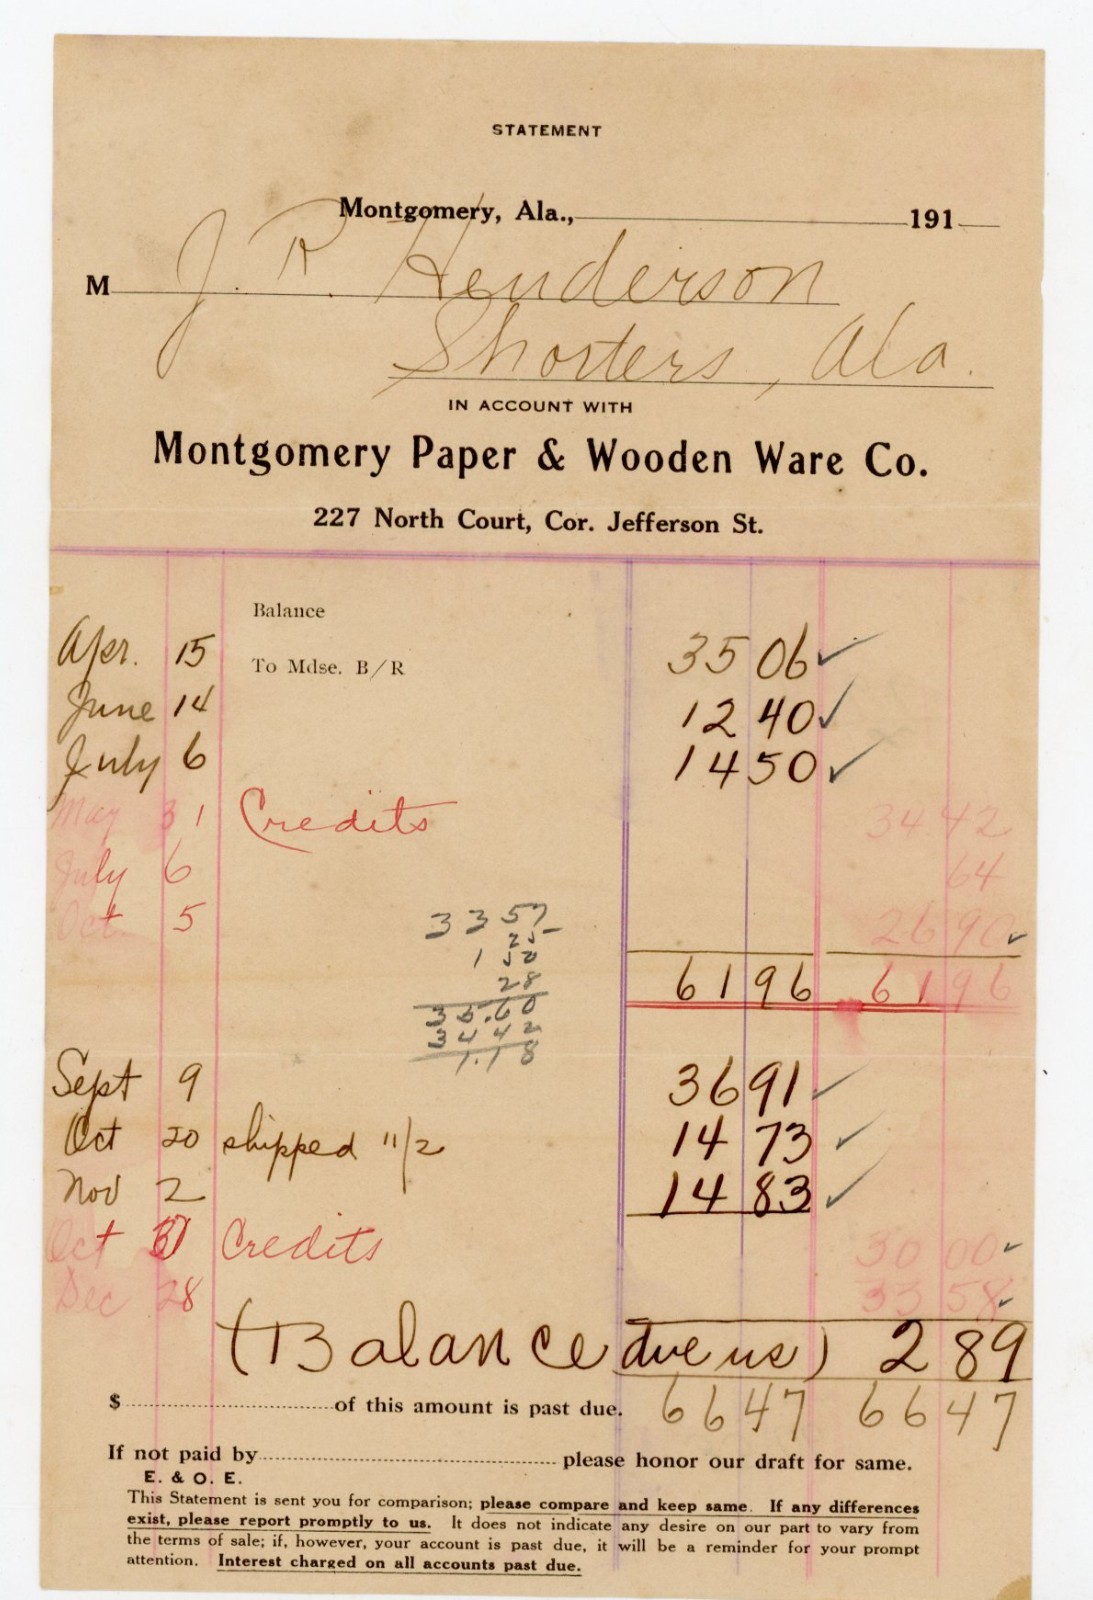 STATEMENT
Montgomery, Ala., 191
M J. R. Henderson
Shorters, Ala.
IN ACCOUNT WITH
Montgomery Paper & Wooden Ware Co.
227 North Court, Cor. Jefferson St.
Balance
Apr. 15 To Mdse. B/R 35 06
June 14 12 40
July 6 14 50
May 31 Credits 34.42
July 6 64
Oct. 5 26 90
33 57
25
1 50
28
35.60
34 42
1.18
61 96 61 96
Sept 9 36 91
Oct 20 shipped 11/2 14 73
Nov 2 14 83
Oct 31 Credits 30 00
Dec 28 33 58
(Balance due us) 2 89
$ of this amount is past due. 66 47 66 47
If not paid by please honor our draft for same.
E. & O. E.
This Statement is sent you for comparison; please compare and keep same. If any differences
exist, please report promptly to us. It does not indicate any desire on our part to vary from
the terms of sale; if, however, your account is past due, it will be a reminder for your prompt
attention. Interest charged on all accounts past due.